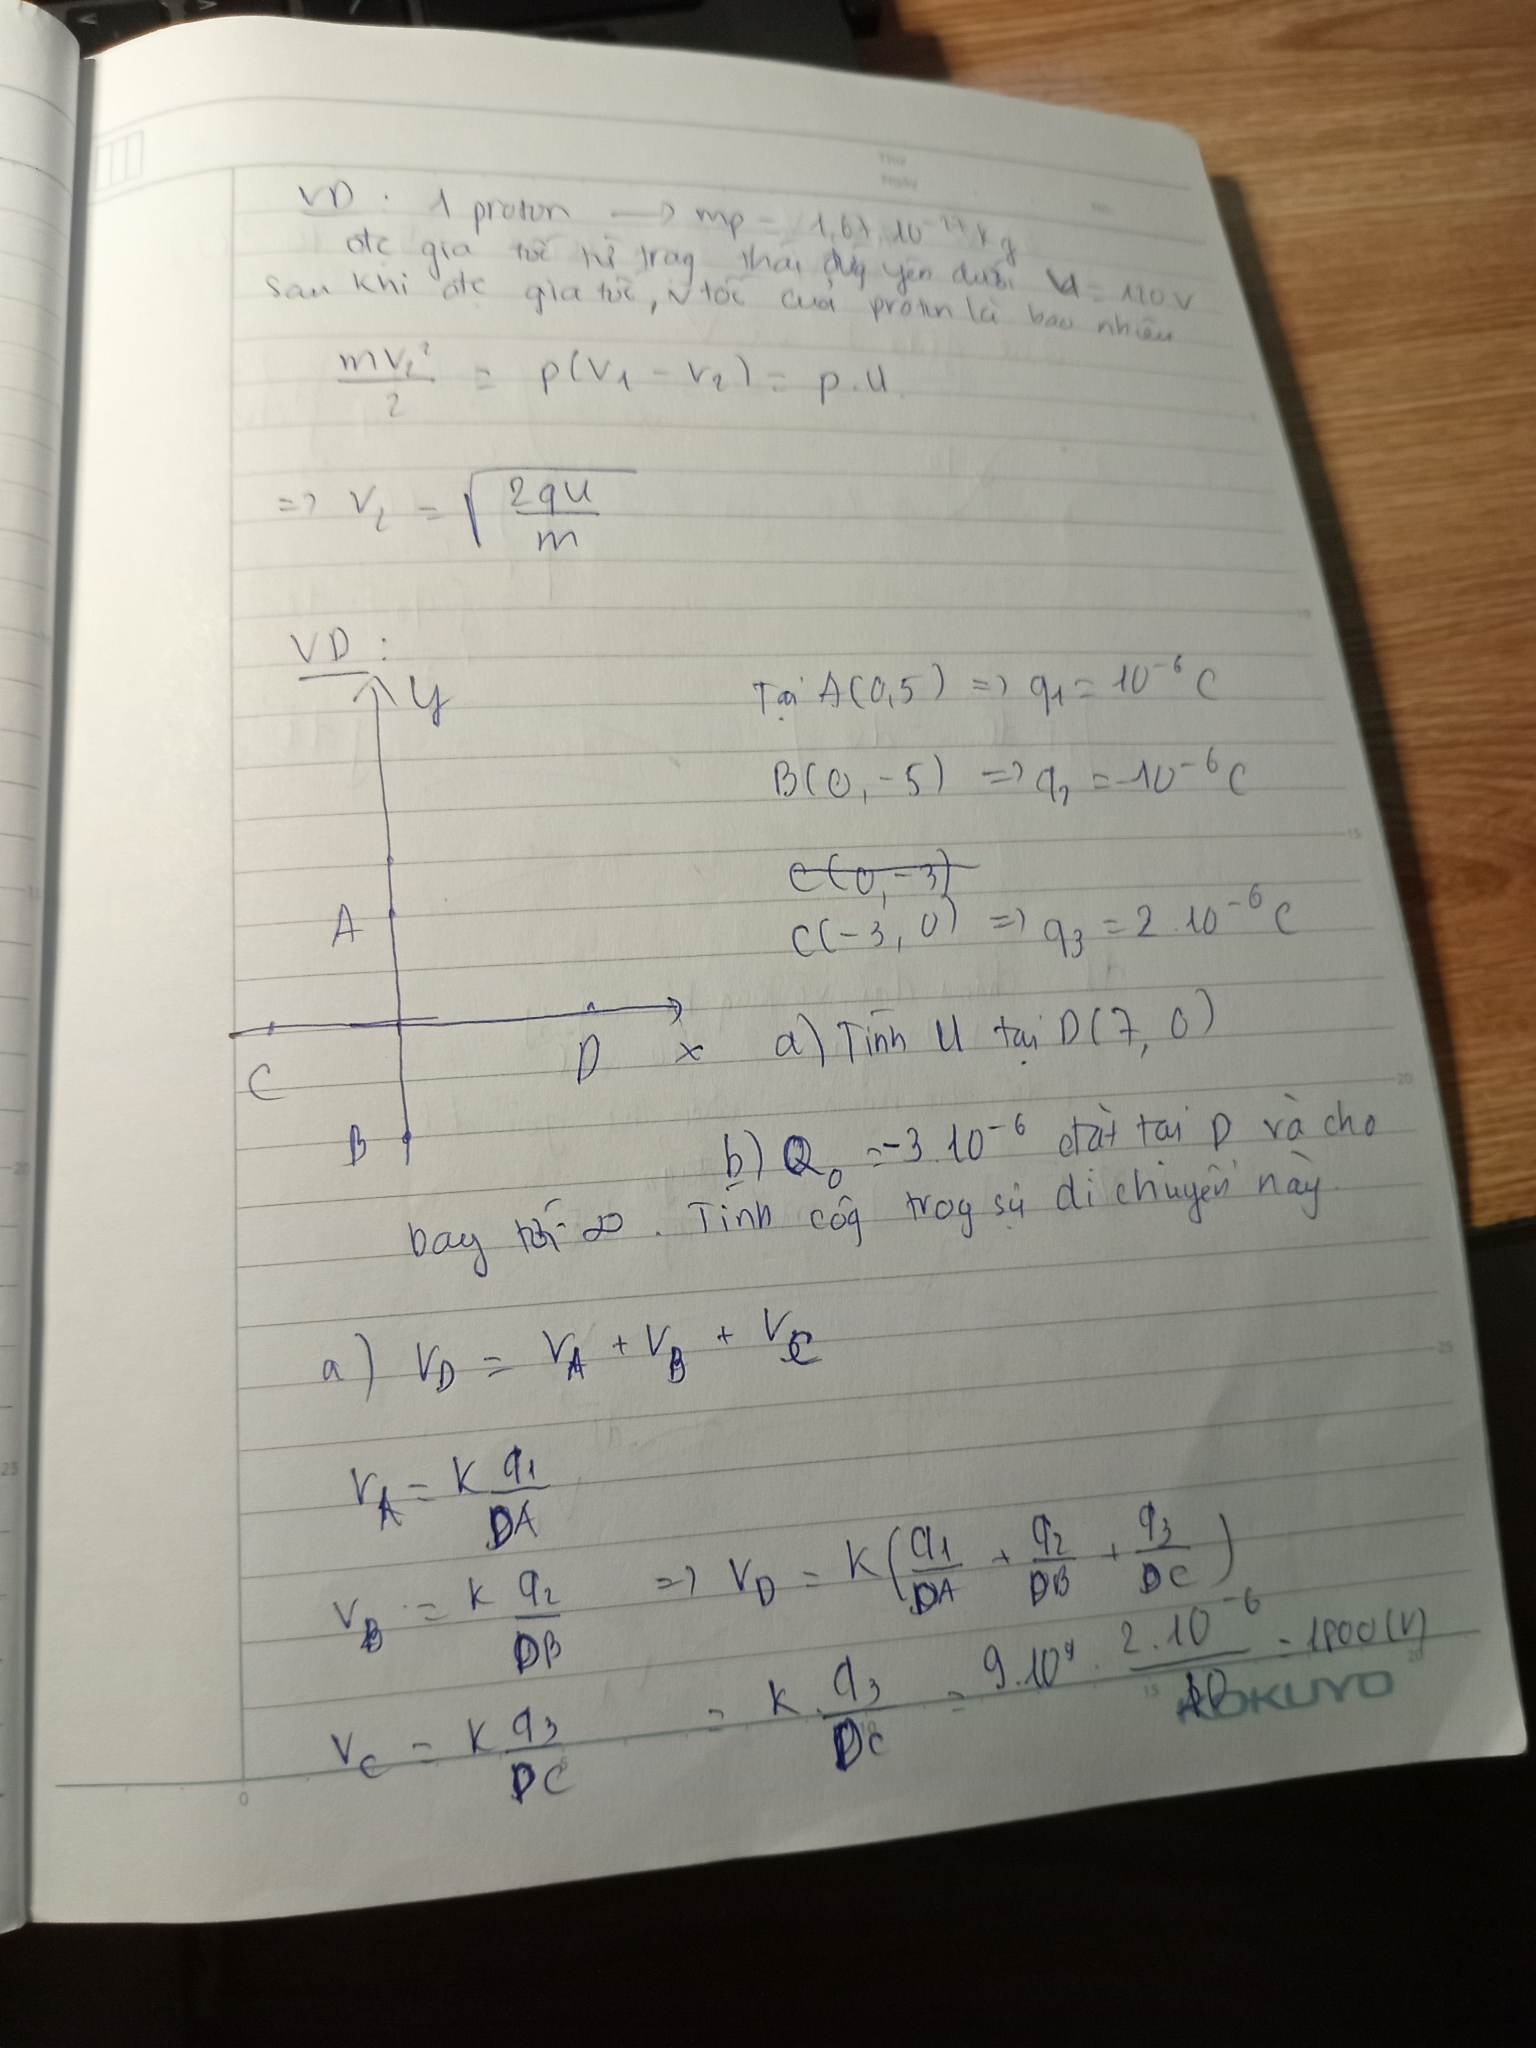 VD : 1 proton → mp = 1,67.10⁻²⁷ kg
đc gia tốc từ trag thái đứg yên dưới U = 120 V
Sau khi đc gia tốc, v tốc của proton là bao nhiêu
mv₂²/2 = p(V₁ - V₂) = p.U.
=> V₂ = √(2qU/m)
VD :
y
Tại A(0,5) => q₁ = 10⁻⁶ C
B(0,-5) => q₂ = -10⁻⁶ C
C(0,-3)
C(-3, 0) => q₃ = 2.10⁻⁶ C
A
C
D
x
B
a) Tính U tại D(7, 0)
b) Q₀ = -3.10⁻⁶ đặt tại D và cho
bay tới ∞. Tính côg trog sự di chuyển này.
a) V_D = V_A + V_B + V_C
V_A = K q₁/DA
V_B = K q₂/DB => V_D = K(q₁/DA + q₂/DB + q₃/DC)
V_C = K q₃/DC = K.q₃/DC = 9.10⁹.2.10⁻⁶/10 = 1800(V)
KOKUYO